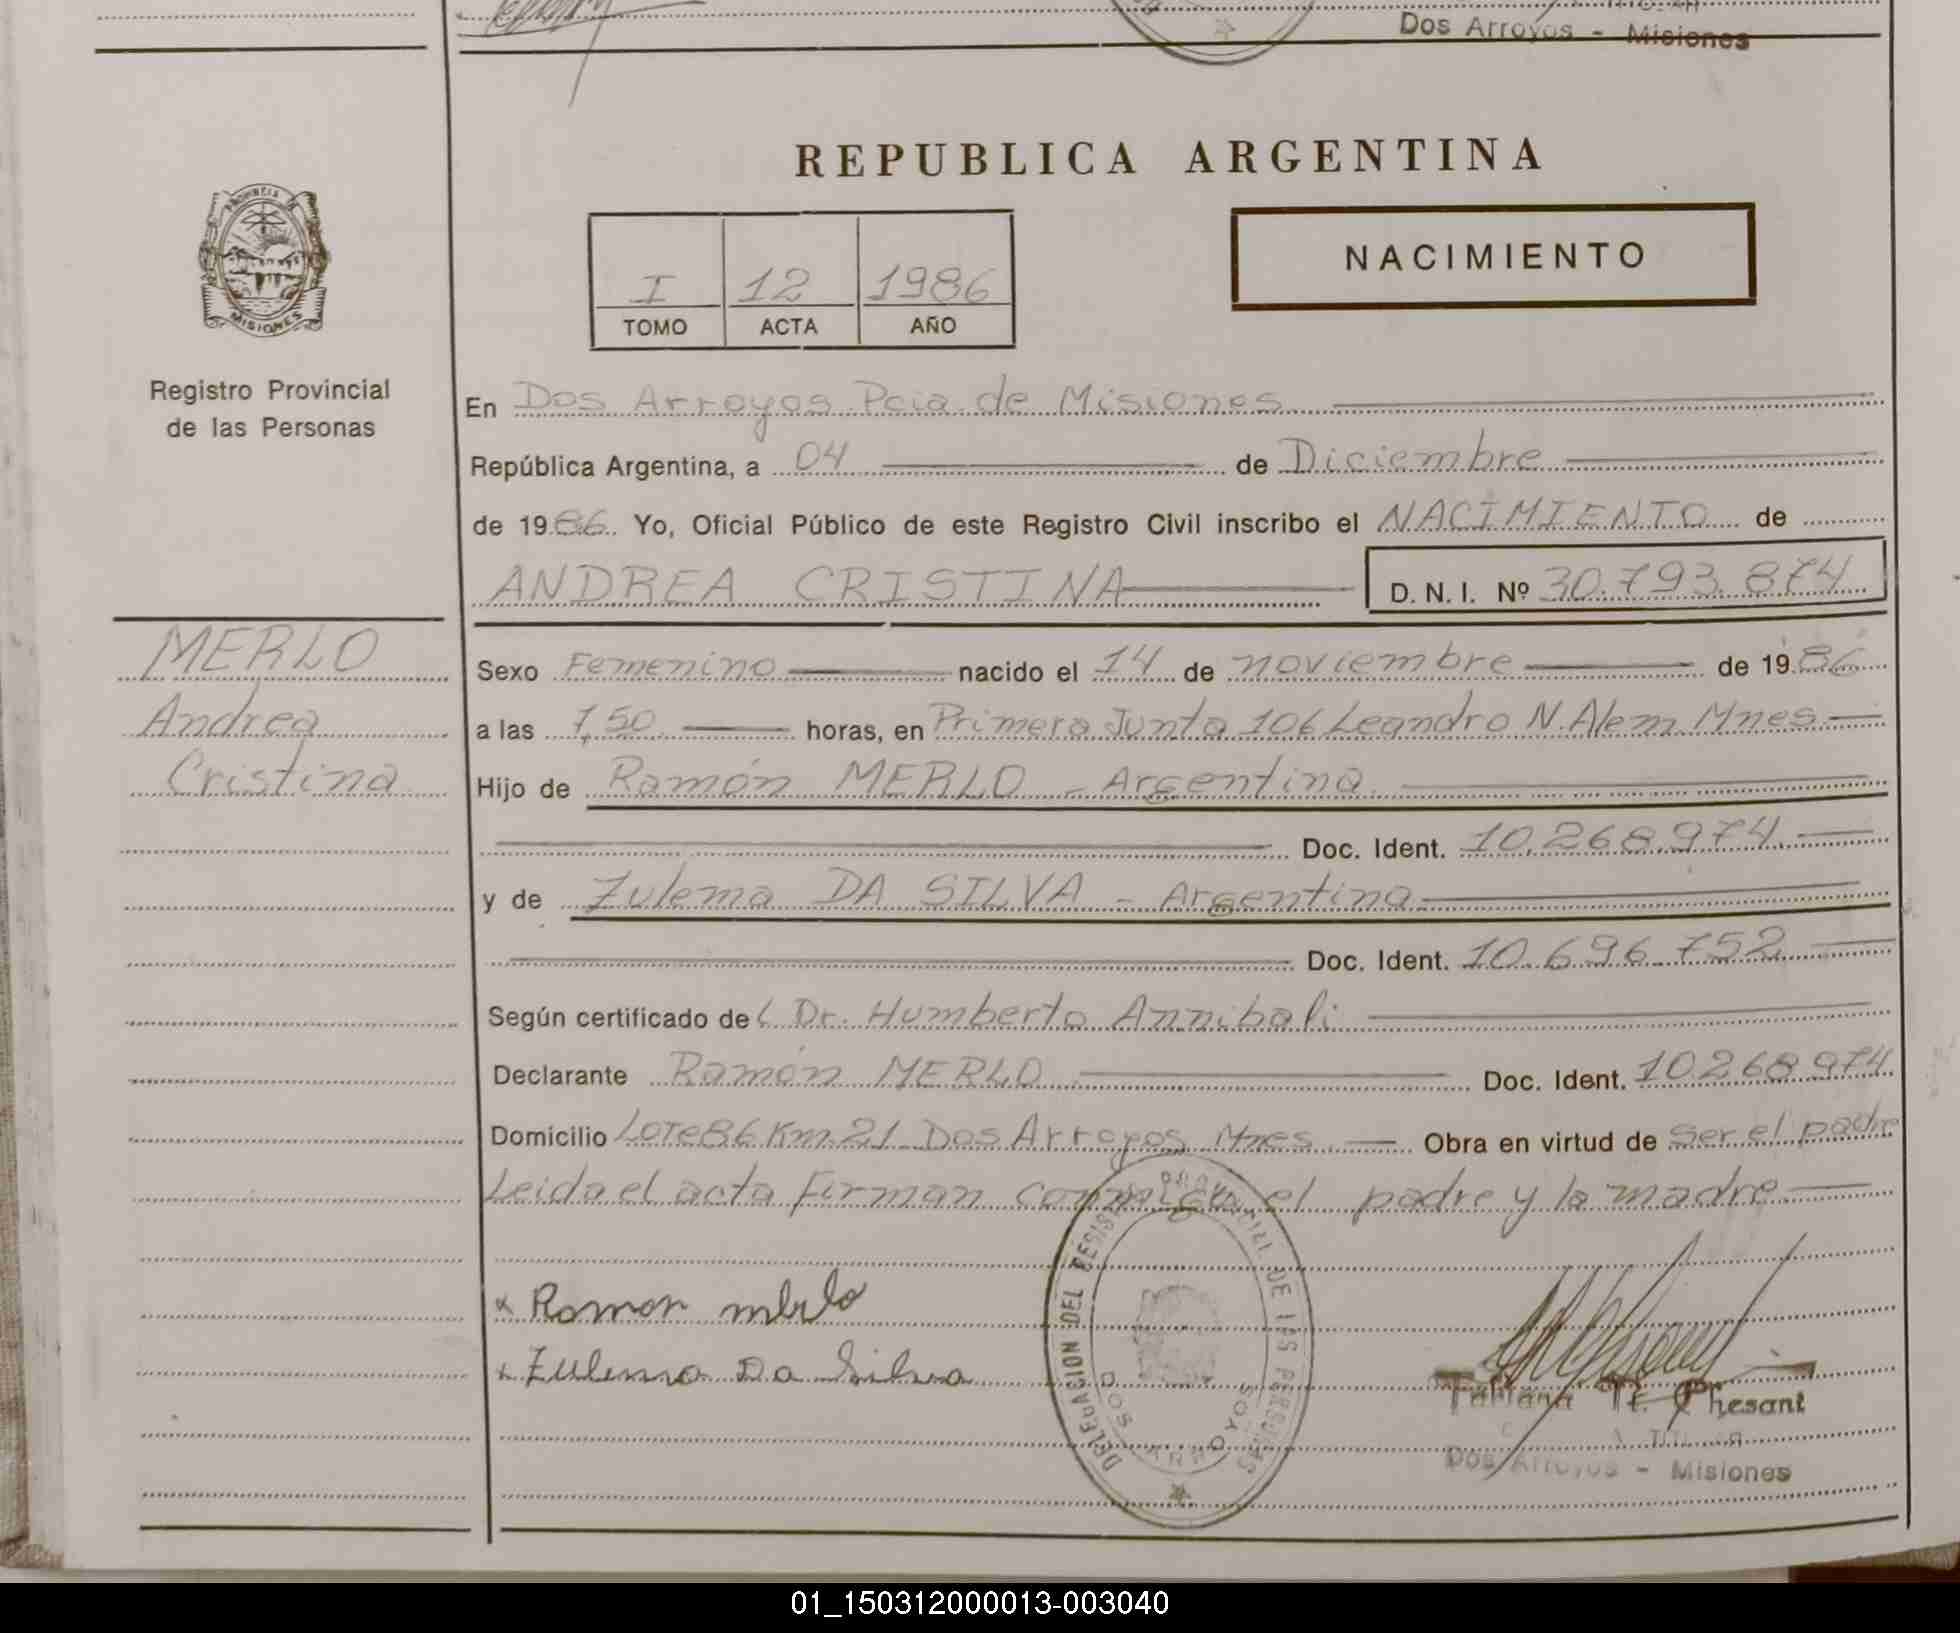 Dos Arroyos - Misiones
REPUBLICA ARGENTINA
PROVINCIA DE
MISIONES
I 12 1986
TOMO ACTA AÑO
NACIMIENTO
Registro Provincial
de las Personas
En Dos Arroyos Pcia de Misiones
República Argentina, a 04 de Diciembre
de 1986 Yo, Oficial Público de este Registro Civil inscribo el NACIMIENTO de
ANDREA CRISTINA D. N. I. Nº 30.793.874
MERLO
Andrea
Cristina
Sexo Femenino nacido el 14 de noviembre de 1986
a las 7,50 horas, en Primera Junta 106 Leandro N. Alem Mnes
Hijo de Ramón MERLO - Argentina
Doc. Ident. 10.268.974
y de Zulema DA SILVA - Argentina
Doc. Ident. 10.696.752
Según certificado del Dr. Humberto Annibali
Declarante Ramón MERLO Doc. Ident. 10268974
Domicilio Lote 86 Km 21 Dos Arroyos Mnes Obra en virtud de ser el padre
Leida el acta firman conmigo el padre y la madre
x Ramon merlo
x Zulema Da Silva
DELEGACION DEL REGISTRO PROVINCIAL DE LAS PERSONAS
DOS ARROYOS
Chesant
Dos Arroyos - Misiones
01_150312000013-003040